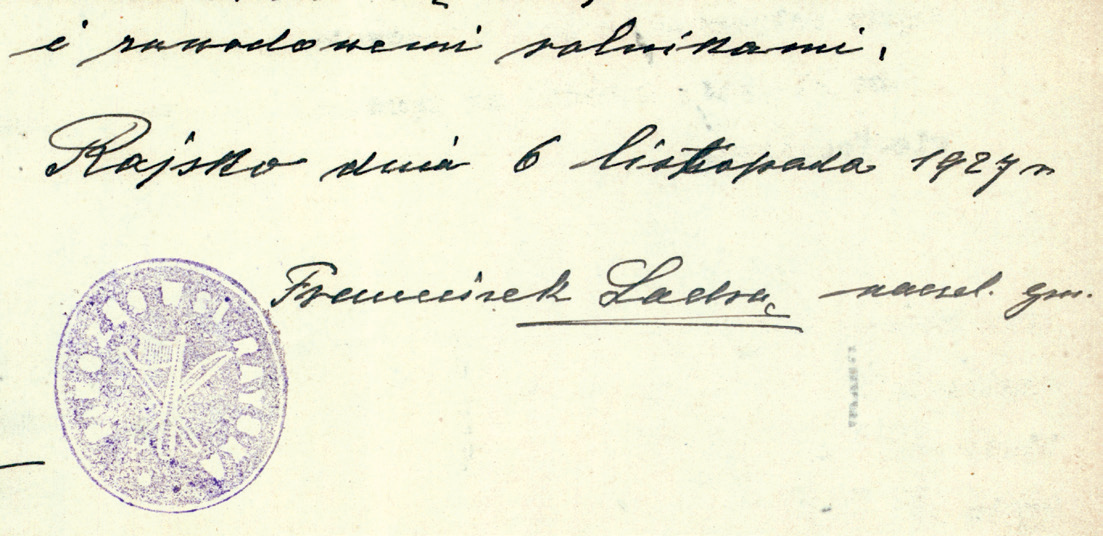 i zawodowemi rolnikami.
Rajsko dnia 6 listopada 1927 r
Franciszek naczel. gm.